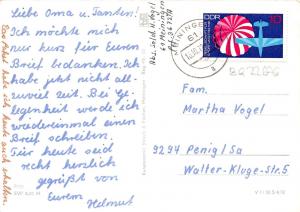 Liebe Oma u. Tanten!
Ich möchte mich
nur kurz für Euren
Brief bedanken. Ich
habe jetzt nicht all-
zuviel Zeit. Bei Ge-
legenheit werde ich
wiedereinmal einen
Brief schreiben.
Für heute seid
recht herzlich
gegrüßt von
Eurem
Helmut
Das Paket habe ich heute auch erhalten.
61 Meiningen
MEININGEN
61
DDR
10
Fam.
Martha Vogel
9297 Penig/Sa
Walter-Kluge-Str.5